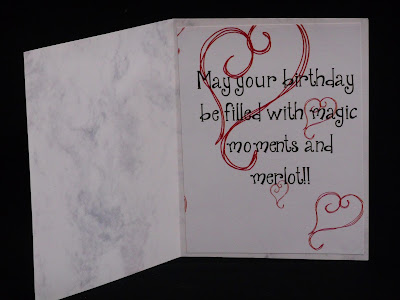 May your birthday
be filled with magic
moments and
merlot!!